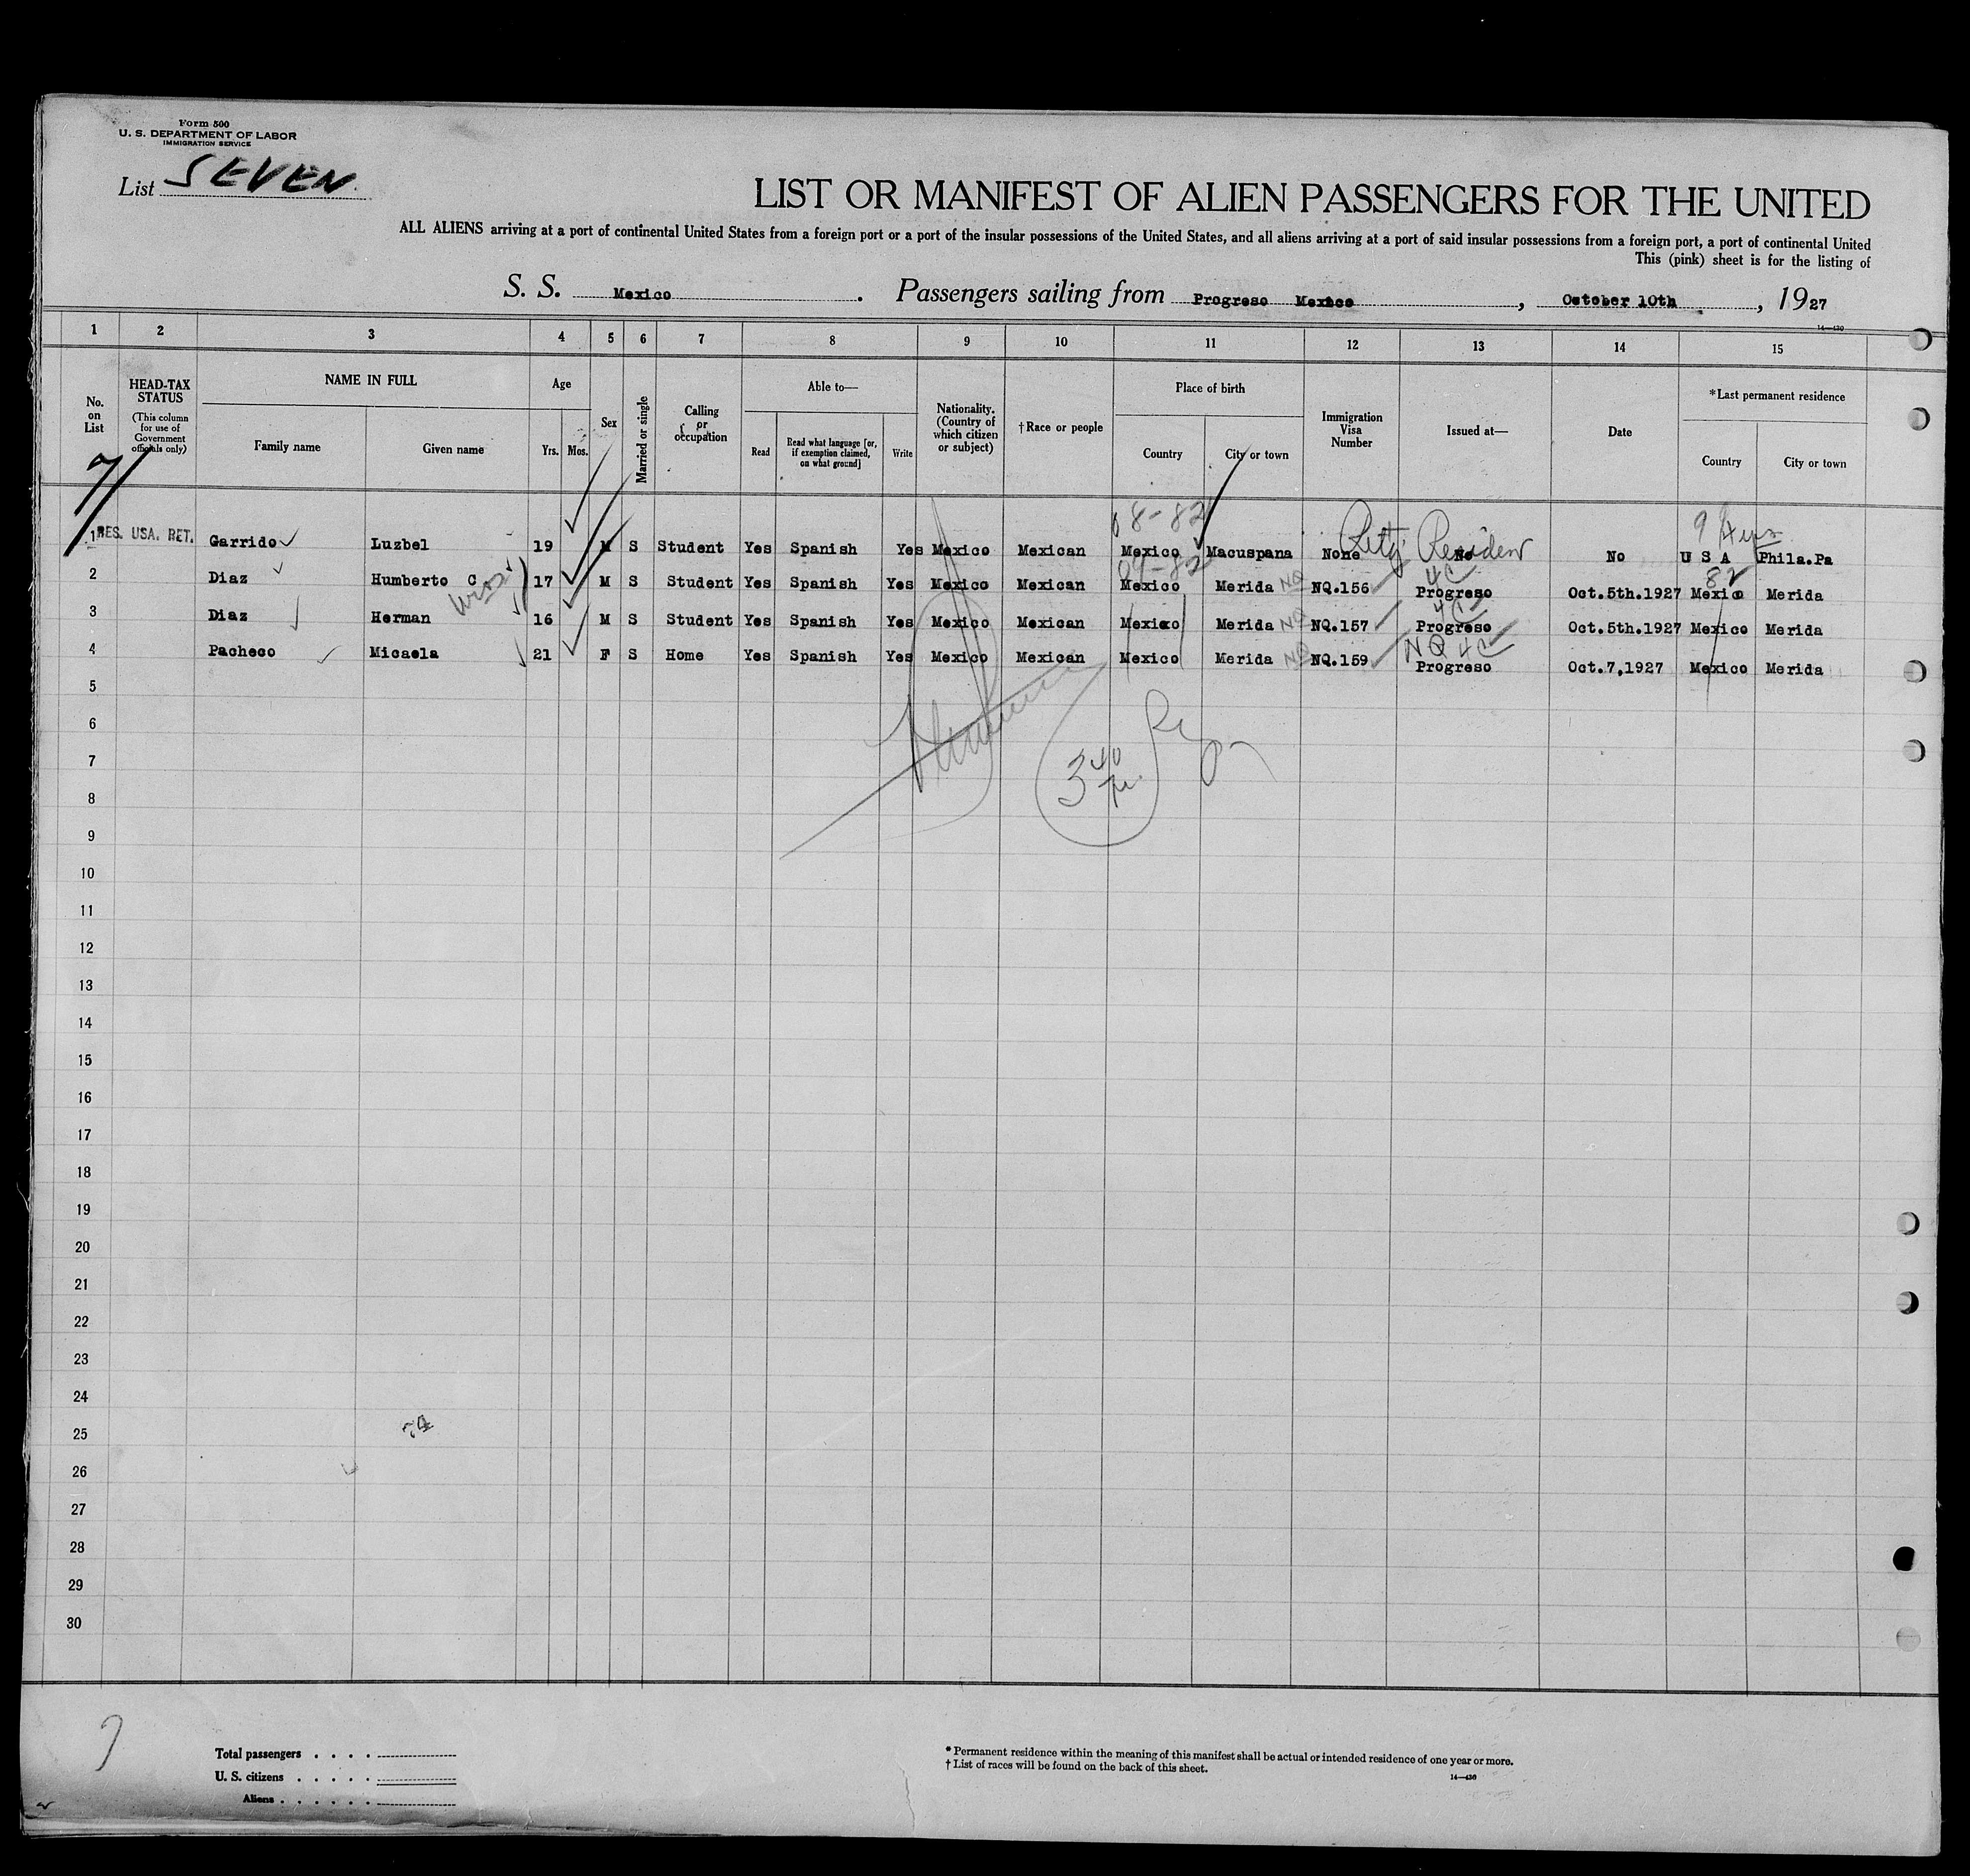 Form 500
U. S. DEPARTMENT OF LABOR
IMMIGRATION SERVICE
List SEVEN
LIST OR MANIFEST OF ALIEN PASSENGERS FOR THE UNITED
ALL ALIENS arriving at a port of continental United States from a foreign port or a port of the insular possessions of the United States, and all aliens arriving at a port of said insular possessions from a foreign port, a port of continental United
This (pink) sheet is for the listing of
S. S. Mexico. Passengers sailing from Progreso Mexico, October 10th, 1927
14—430
1 2 3 4 5 6 7 8 9 10 11 12 13 14 15
No. on List
HEAD-TAX STATUS (This column for use of Government officials only)
NAME IN FULL
Family name Given name
Age
Yrs. Mos.
Sex
Married or single
Calling or occupation
Able to—
Read Read what language [or, if exemption claimed, on what ground] Write
Nationality. (Country of which citizen or subject)
†Race or people
Place of birth
Country City or town
Immigration Visa Number
Issued at—
Date
*Last permanent residence
Country City or town
7
08-82
Rtg. Resident
99
1 RES. USA. RET. Garrido Luzbel 19 M S Student Yes Spanish Yes Mexico Mexican Mexico Macuspana None No No U S A Phila.Pa
09-82 4C 82
2 Diaz Humberto C 17 M S Student Yes Spanish Yes Mexico Mexican Mexico Merida NQ NQ.156 Progreso Oct.5th.1927 Mexico Merida
4C
3 Diaz Herman 16 M S Student Yes Spanish Yes Mexico Mexican Mexico Merida NQ NQ.157 Progreso Oct.5th.1927 Mexico Merida
NQ 4C
4 Pacheco Micaela 21 F S Home Yes Spanish Yes Mexico Mexican Mexico Merida NQ NQ.159 Progreso Oct.7,1927 Mexico Merida
5
6
7
8
9
10
11
12
13
14
15
16
17
18
19
20
21
22
23
24
25
26
27
28
29
30
7
Total passengers . . . .
U. S. citizens . . . . .
Aliens . . . . . .
* Permanent residence within the meaning of this manifest shall be actual or intended residence of one year or more.
† List of races will be found on the back of this sheet.
14—430